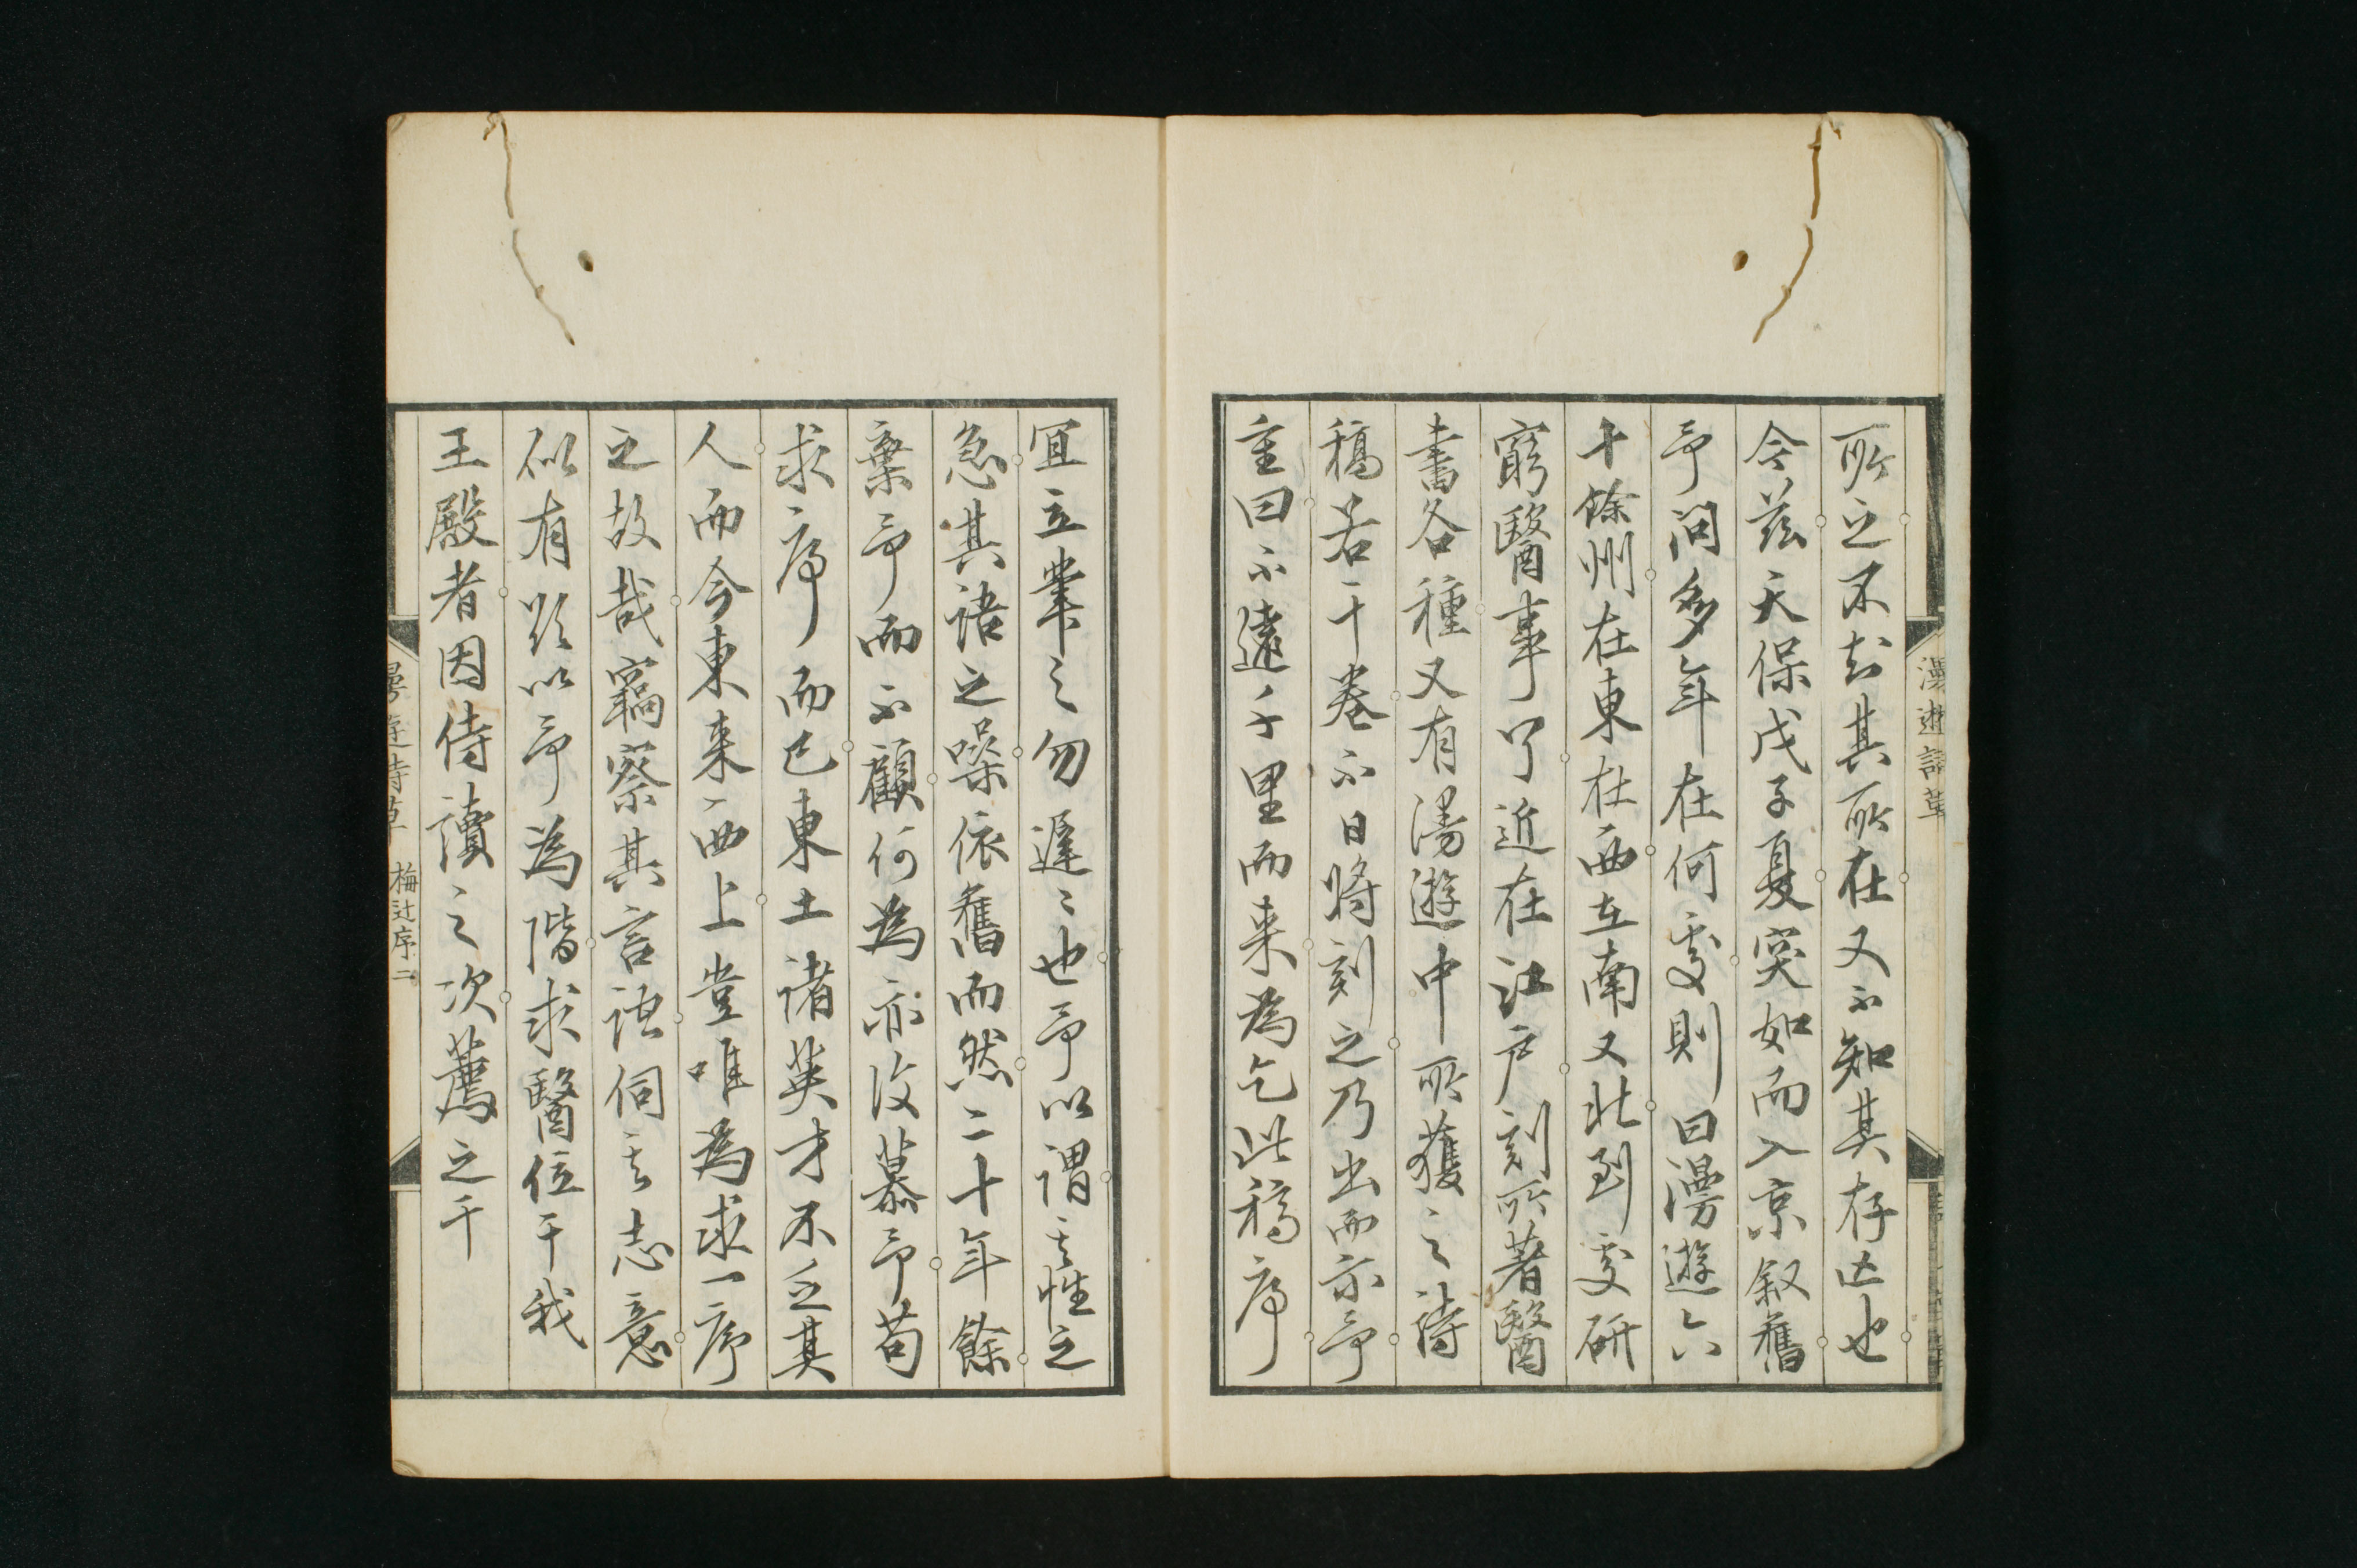 所之不知其所在又不知其存亡也
今茲天保戊子夏突如而入京叙舊
予問多年在何處則曰漫遊六
十餘州在東在西在南又北到處研
窮醫事了近在江戶刻所著醫
書各種又有漫遊中所獲之詩
稿若干卷不日將刻之乃出而示予
重曰不遠千里而来為乞此稿序
宜立業之勿遲〻也予以謂其性之
急其語之噪依舊而然二十年餘
棄予而不顧何為亦復慕予苟
求序而已東土諸英才不乏其
人而今東来西上豈唯為求一序
之故哉竊察其言語伺其志意
似有欲以予為階求醫位于我
王殿者因侍讀之次薦之于
漫遊詩草
梅辻序二